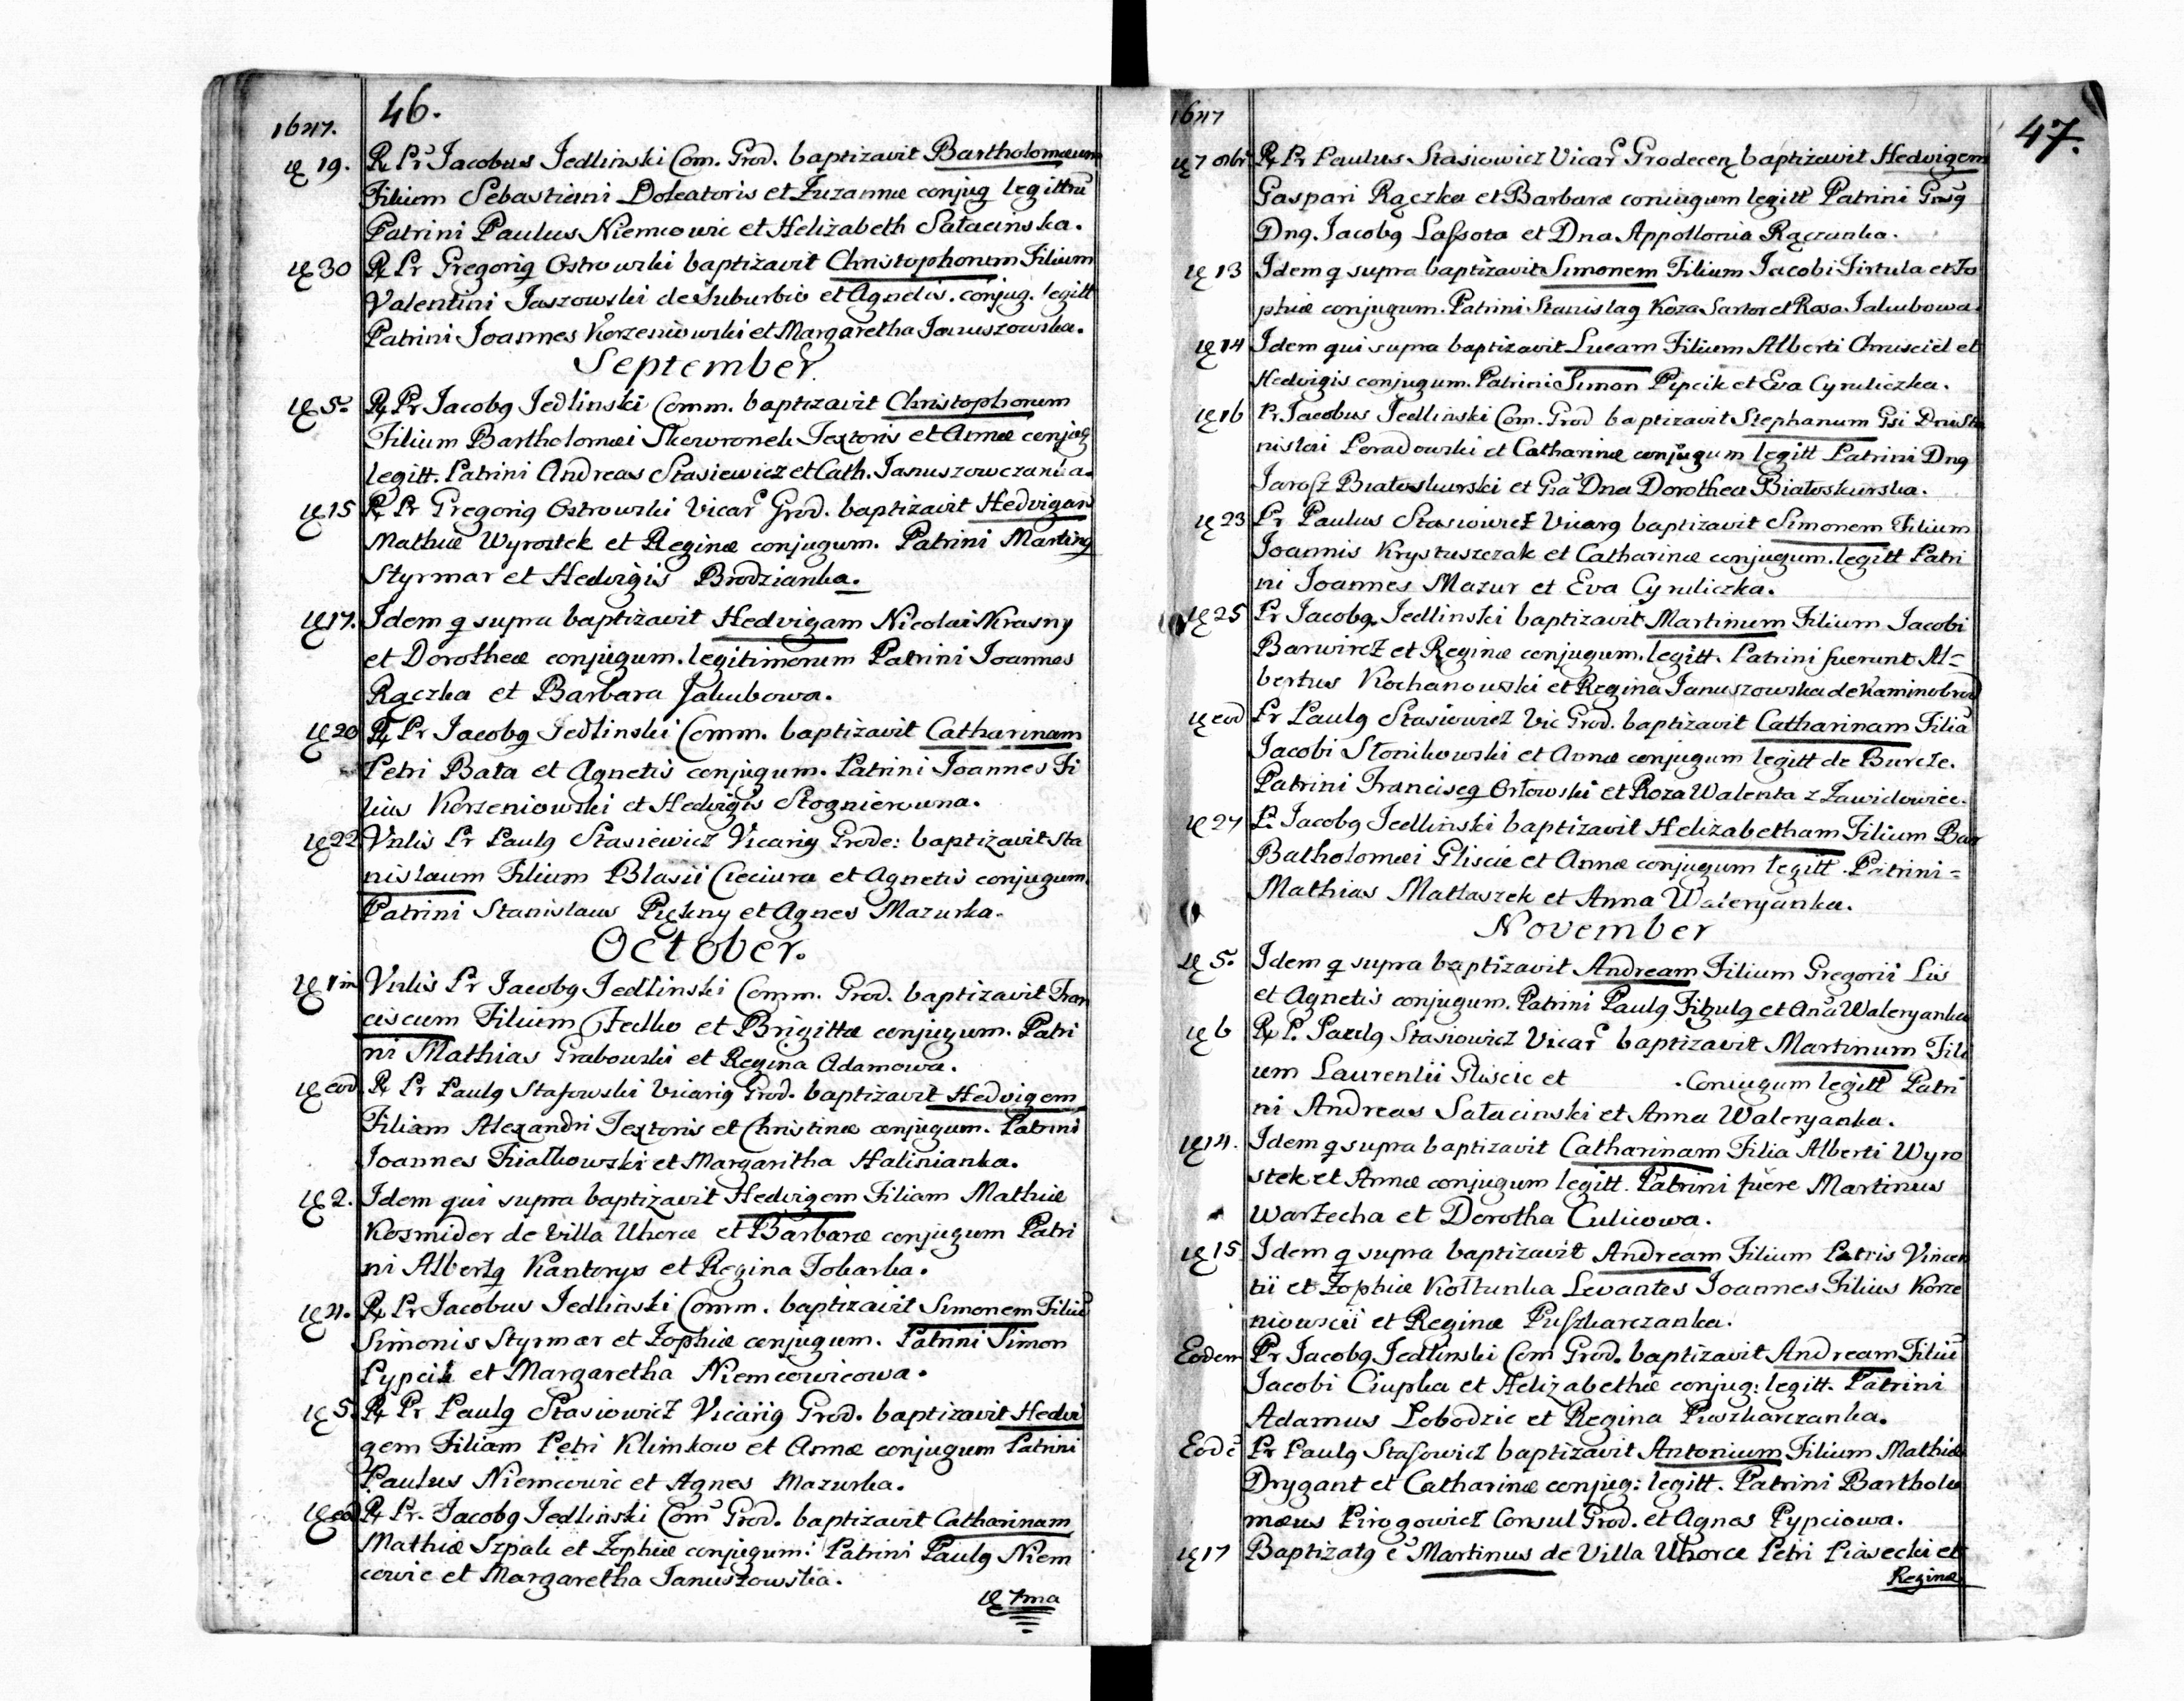 1647. 46.
19. R Pr Jacobus Jedlinski Com. Grod. baptizavit Bartholomæum
Filium Sebastiani Doleatoris et Zuzannæ conjug legittũ
Patrini Paulus Niemcowic et Helizabeth Sałacinska.
30 R Pr Gregorig Ostrowski baptizavit Christophorum Filium
Valentini Jaszowski de Suburbio et Agnetis. conjug. legitt
Patrini Joannes Korzeniowski et Margaretha Januszowska.
September
5. R Pr Jacobg Jedlinski Comm. baptizavit Christophorum
Filium Bartholomæi Skowronek Textoris et Annæ conjug
legitt. Patrini Andreas Stasiewicz et Cath. Januszowczanka.
15 R Pr Gregorig Ostrowski Vicar Grod. baptizavit Hedvigam
Mathiæ Wyrostek et Reginæ conjugum. Patrini Marting
Styrmar et Hedvigis Brodzianka.
17. Idem q supra baptizavit Hedvigam Nicolai Krasny
et Dorotheæ conjugum. legitimorum Patrini Joannes
Rączka et Barbara Jakubowa.
20 R Pr Jacobg Jedlinski Comm. baptizavit Catharinam
Petri Bata et Agnetis conjugum. Patrini Joannes Fi
lius Korzeniowski et Hedvigis Stognierowna.
22 Vnlis Pr Paulg Stasiewicz Vicarig Grode: baptizavit Sta
nislaum Filium Blasii Cieciura et Agnetis conjugum.
Patrini Stanislaus Piękny et Agnes Mazurka.
October.
1 Vnlis Pr Jacobg Jedlinski Comm. Grod. baptizavit Fran
ciscum Filium Fedko et Brigittæ conjugum. Patri
ni Mathias Grabowski et Regina Adamowa.
eod R Pr Paulg Stasowski Vicarig Grod. baptizavit Hedvigem
Filiam Alexandri Textoris et Christinæ conjugum. Patrini
Joannes Fiałkowski et Margaritha Halinianka.
2. Idem qui supra baptizavit Hedvigem Filiam Mathiæ
Kosmider de villa Uhorce et Barbaræ conjugum Patri
ni Albertg Kantorys et Regina Tokarka.
4. R Pr Jacobus Jedlinski Comm. baptizavit Simonem Filiũ
Simonis Styrmar et Zophiæ conjugum. Patrini Simon
Pypcik et Margaretha Niemcowicowa.
5. R Pr Paulg Stasiowicz Vicarig Grod. baptizavit Hedvi
gem Filiam Petri Klimkow et Annæ conjugum Patrini
Paulus Niemcowic et Agnes Mazurka.
eod R Pr. Jacobg Jedlinski Com Grod. baptizavit Catharinam
Mathiæ Szpak et Zophiæ conjugum: Patrini Paulg Niem
cowic et Margaretha Januszowska.
7ma
1647 47.
7 R Pr Paulus Stasiowicz Vicar Grodecen baptizavit Hedvigem
Gaspari Rączka et Barbaræ coniugum legitt Patrini
Dng. Jacobg Lassota et Dna Appollonia Rączanka.
13 Idem q supra baptizavit Simonem Filium Jacobi Firtula et Zo
phiæ conjugum. Patrini Stanislag Koza Sartor et Rosa Jakubowa.
14 Idem qui supra baptizavit Lucam Filium Alberti Chrusciel et
Hedvigis conjugum. Patrini Simon Pipcik et Eva Cyruliczka.
16 Pr. Jacobus Jedlinski Com. Grod baptizavit Stephanum Gsi Dni Sta
nislai Poradowski et Catharinæ conjugum legitt Patrini Dng
Jarosz Białoskurski et Gsa Dna Dorothea Białoskurska.
23 Pr Paulus Stasiowicz Vicarg baptizavit Simonem Filium
Joannis Krystuszczak et Catharinæ conjugum. legitt Patri
ni Joannes Mazur et Eva Cyruliczka.
25 Pr Jacobg Jedlinski baptizavit Martinum Filium Jacobi
Barwicz et Reginæ conjugum. legitt. Patrini fuerunt Al=
bertus Kochanowski et Regina Januszowska de Kaminobrod
eod Pr Paulg Stasiowicz Vic Grod. baptizavit Catharinam Filiã
Jacobi Słonikowski et Annæ conjugum legitt de Burcze.
Patrini Franciscg Orłowski et Roza Walenta z Zawidowiec.
27 P. Jacobg Jedlinski baptizavit Helizabetham Filium Bar
Batholomæi Gliscie et Annæ conjugum legitt. Patrini=
Mathias Matłaszek et Anna Waleryanka.
November
5. Idem q supra baptizavit Andream Filium Gregorii Lis
et Agnetis conjugum. Patrini Paulg Fitzulg et Anã Waleryanka
6 R P. Paulg Stasiowicz Vicar baptizavit Martinum Fili
um Laurentii Gliscic et . Coniugum legitt Patri
ni Andreas Sałacinski et Anna Waleryanka.
14. Idem q supra baptizavit Catharinam Filia Alberti Wyro
stek et Annæ conjugum legitt. Patrini fuere Martinus
Warzecha et Dorotha Culicowa.
15 Idem q supra baptizavit Andream Filium Patris Vincen
tii et Zophiæ Kołtunka Levantes Joannes Filius Korze
niowscii et Reginæ Puszkarczanka.
Eodem Pr Jacobg Jedlinski Com Grod. baptizavit Andream Filiũ
Jacobi Ciupka et Helizabethæ conjug: legitt. Patrini
Adamus Lobodzic et Regina Puszkarczanka.
Eodẽ Pr Paulg Stasowicz baptizavit Antonium Filium Mathiæ
Drygant et Catharinæ conjug: legitt. Patrini Bartholo
mæus Pirogowicz Consul Grod. et Agnes Pypciowa.
17 Baptizatg ẽ Martinus de Villa Uhorce Petri Piasecki et
Reginæ